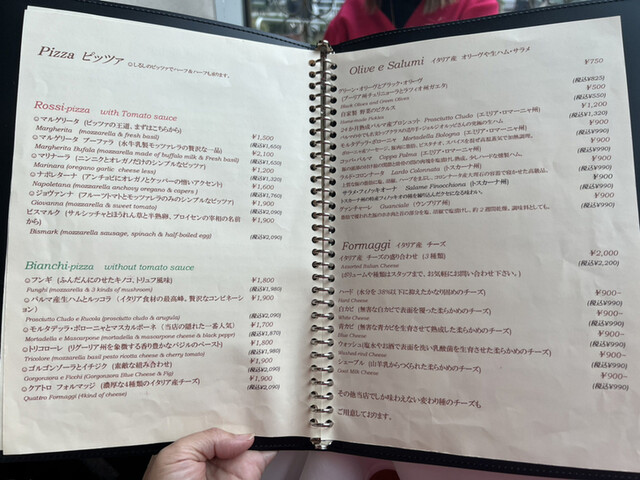 Pizza ピッツァ
☺しるしのピッツァでハーフ&ハーフも承ります。
Rossi-pizza with Tomato sauce
☺マルゲリータ (ピッツァの王道、まずはこちらから) ¥1,500
Margherita (mozzarella & fresh basil) (税込¥1,650)
☺マルゲリータ ブーファラ (水牛乳製モッツァレラの贅沢な一品) ¥2,100
Margherita Bufala (mozzarella made of buffalo milk & fresh basil)
☺マリナーラ (ニンニクとオレガノだけのシンプルなピッツァ) ¥1,200
Marinara (oregano garlic cheese less) (税込¥1,320)
☺ナポレターナ (アンチョビにオレガノとケッパーの憎いアクセント) ¥1,600
Napoletana (mozzarella anchovy oregano & capers) (税込¥1,760)
☺ジョヴァンナ (フルーツトマトとモッツァレラのみのシンプルなピッツァ) ¥1,900
Giovanna (mozzarella & sweet tomato) (税込¥2,090)
ビスマルク (サルシッチャとほうれん草と半熟卵、プロイセンの宰相の名前から) ¥1,900
Bismark (mozzarella sausage, spinach & half-boiled egg) (税込¥2,090)
Bianchi-pizza without tomato sauce
☺フンギ (ふんだんにのせたキノコ、トリュフ風味) ¥1,800
Funghi (mozzarella & 3 kinds of mushroom) (税込¥1,980)
☺パルマ産生ハムとルッコラ (イタリア食材の最高峰。贅沢なコンビネーション) ¥1,900
Prosciutto Crudo e Rucola (prosciutto crudo & arugula) (税込¥2,090)
☺モルタデッラ・ボローニャとマスカルポーネ (当店の隠れた一番人気) ¥1,700
Mortadella e Mascarpone (mortadella & mascarpone cheese & black pepper) (税込¥1,870)
☺トリコローレ (リグーリア州を象徴する香り豊かなバジルのペースト) ¥1,800
Tricolore (mozzarella basil pesto ricotta cheese & cherry tomato) (税込¥1,980)
☺ゴルゴンゾーラとイチジク (素敵な組み合わせ) ¥1,900
Gorgonzora e Ficchi (Gorgonzora Blue Cheese & Fig) (税込¥2,090)
☺クアトロ フォルマッジ (濃厚な4種類のイタリア産チーズ) ¥1,900
Quattro Formaggi (4kind of cheesy) (税込¥2,090)
Olive e Salumi イタリア産 オリーヴや生ハム・サラメ
¥750
グリーン・オリーヴとブラック・オリーヴ (税込¥825)
Black Olives and Green Olives ¥500
自家製 野菜のピクルス (税込¥550)
Home-made Pickles ¥1,200
24か月熟成パルマ産プロシュット Prosciutto Cludo (エミリア・ロマーニャ州) (税込¥1,320)
¥900
モルタデッラ・ボローニャ Mortadella Bologna (エミリア・ロマーニャ州) (税込¥990)
¥900
コッパ・パルマ Coppa Palma (エミリア・ロマーニャ州) (税込¥990)
¥900
ラルド・コロンナータ Lardo Colonnata (トスカーナ州) (税込¥990)
¥900
サラメ・フィノッキオーナ Salame Finocchiona (トスカーナ州) (税込¥990)
¥900
グァンチャーレ Guanciale (ウンブリア州) (税込¥990)
Formaggi イタリア産 チーズ
イタリア産 チーズの盛り合わせ (3種類) ¥2,000
Assorted Italian Cheese (税込¥2,200)
(ボリュームや種類はスタッフまで、お気軽にお問い合わせ下さい。)
ハード (水分を38%以下に抑えたかなり固めのチーズ) ¥900~
Hard Cheese (税込¥990)
白カビ (無害な白カビで表面を覆った柔らかめのチーズ) ¥900~
White Cheese (税込¥990)
青カビ (無害な青カビを生育させて熟成した柔らかめのチーズ) ¥900~
Blue Cheese (税込¥990)
ウォッシュ(塩水やお酒で表面を洗い乳酸菌を生育させた柔らかめのチーズ) ¥900~
Washed-rind Cheese (税込¥990)
シェーブル (山羊乳からつくられた柔らかめのチーズ) ¥900~
Goat Milk Cheese (税込¥990)
その他当店でしか味わえない変わり種のチーズも
ご用意しております。